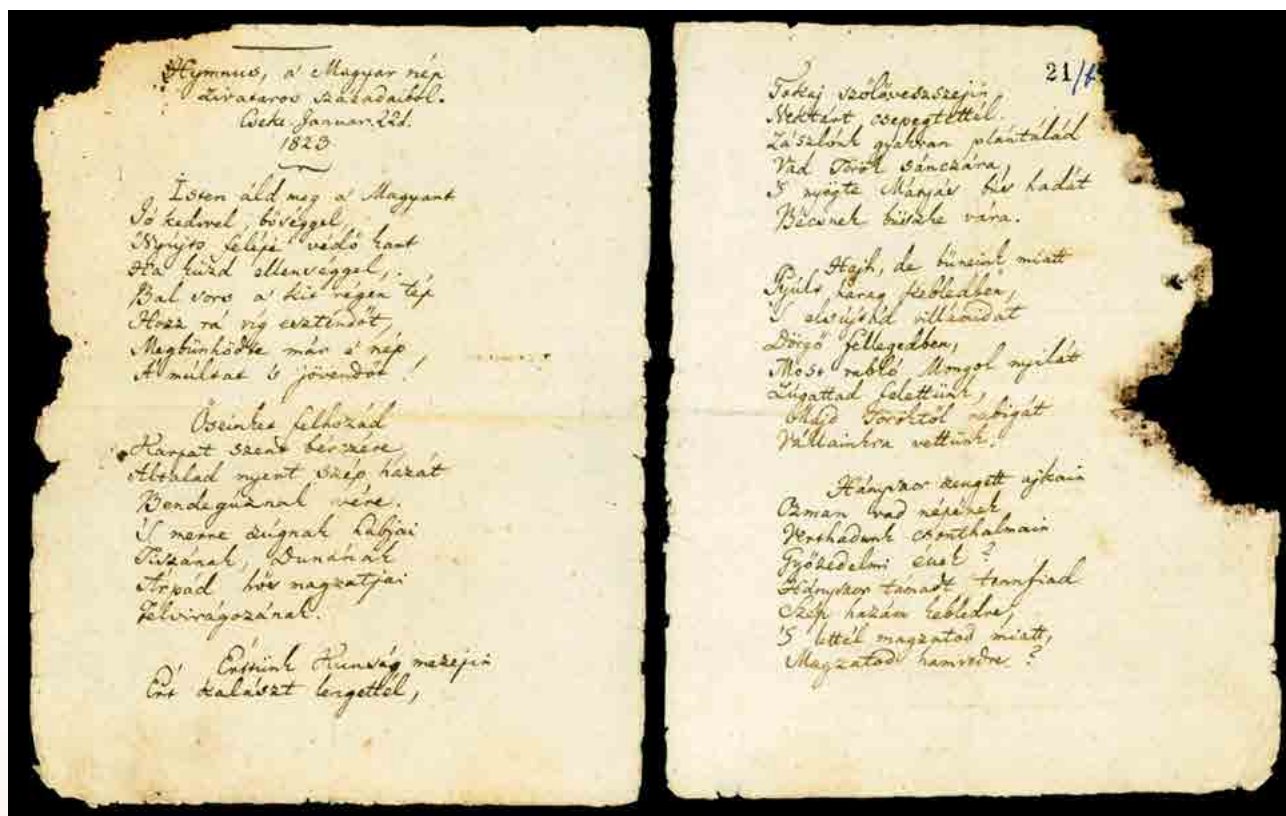 Hymnus, a' Magyar nép
zivataros századaiból.
Cseke. Januar. 22d.
1823
Isten áld meg a' Magyart
Jó kedvvel bőséggel,
Nyújts feléje védő kart
Ha küzd ellenséggel,
Bal sors a' kit régen tép
Hozz rá víg esztendőt,
Megbünhödte már e' nép
A' multat 's jövendőt!
Őseinket felhozád
Kárpát szent bérczére,
Általad nyert szép hazát
Bendegúznak vére.
'S merre zúgnak habjai
Tiszának, Dunának
Árpád hős magzatjai
Felvirágozának.
Értünk Kunság mezejin
Ért kalászt lengettél,
21/b
Tokaj szőlővesszejin
Nektárt csepegtettél.
Zászlónk gyakran plántálád
Vad Török sánczára,
'S nyögte Mátyás bús hadát
Bécsnek büszke vára.
Hajh, de bűneink miatt
Gyúlt harag kebledben,
'S elsújtád villámidat
Dörgő fellegedben,
Most rabló Mongol nyilát
Zúgattad felettünk,
Majd Töröktől rabigát
Vállainkra vettünk.
Hányszor zengett ajkain
Ozman vad népének
Vert hadunk csonthalmain
Győzedelmi ének?
Hányszor támadt tenfiad
Szép hazám kebledre,
'S lettél magzatod miatt,
Magzatod hamvedre?